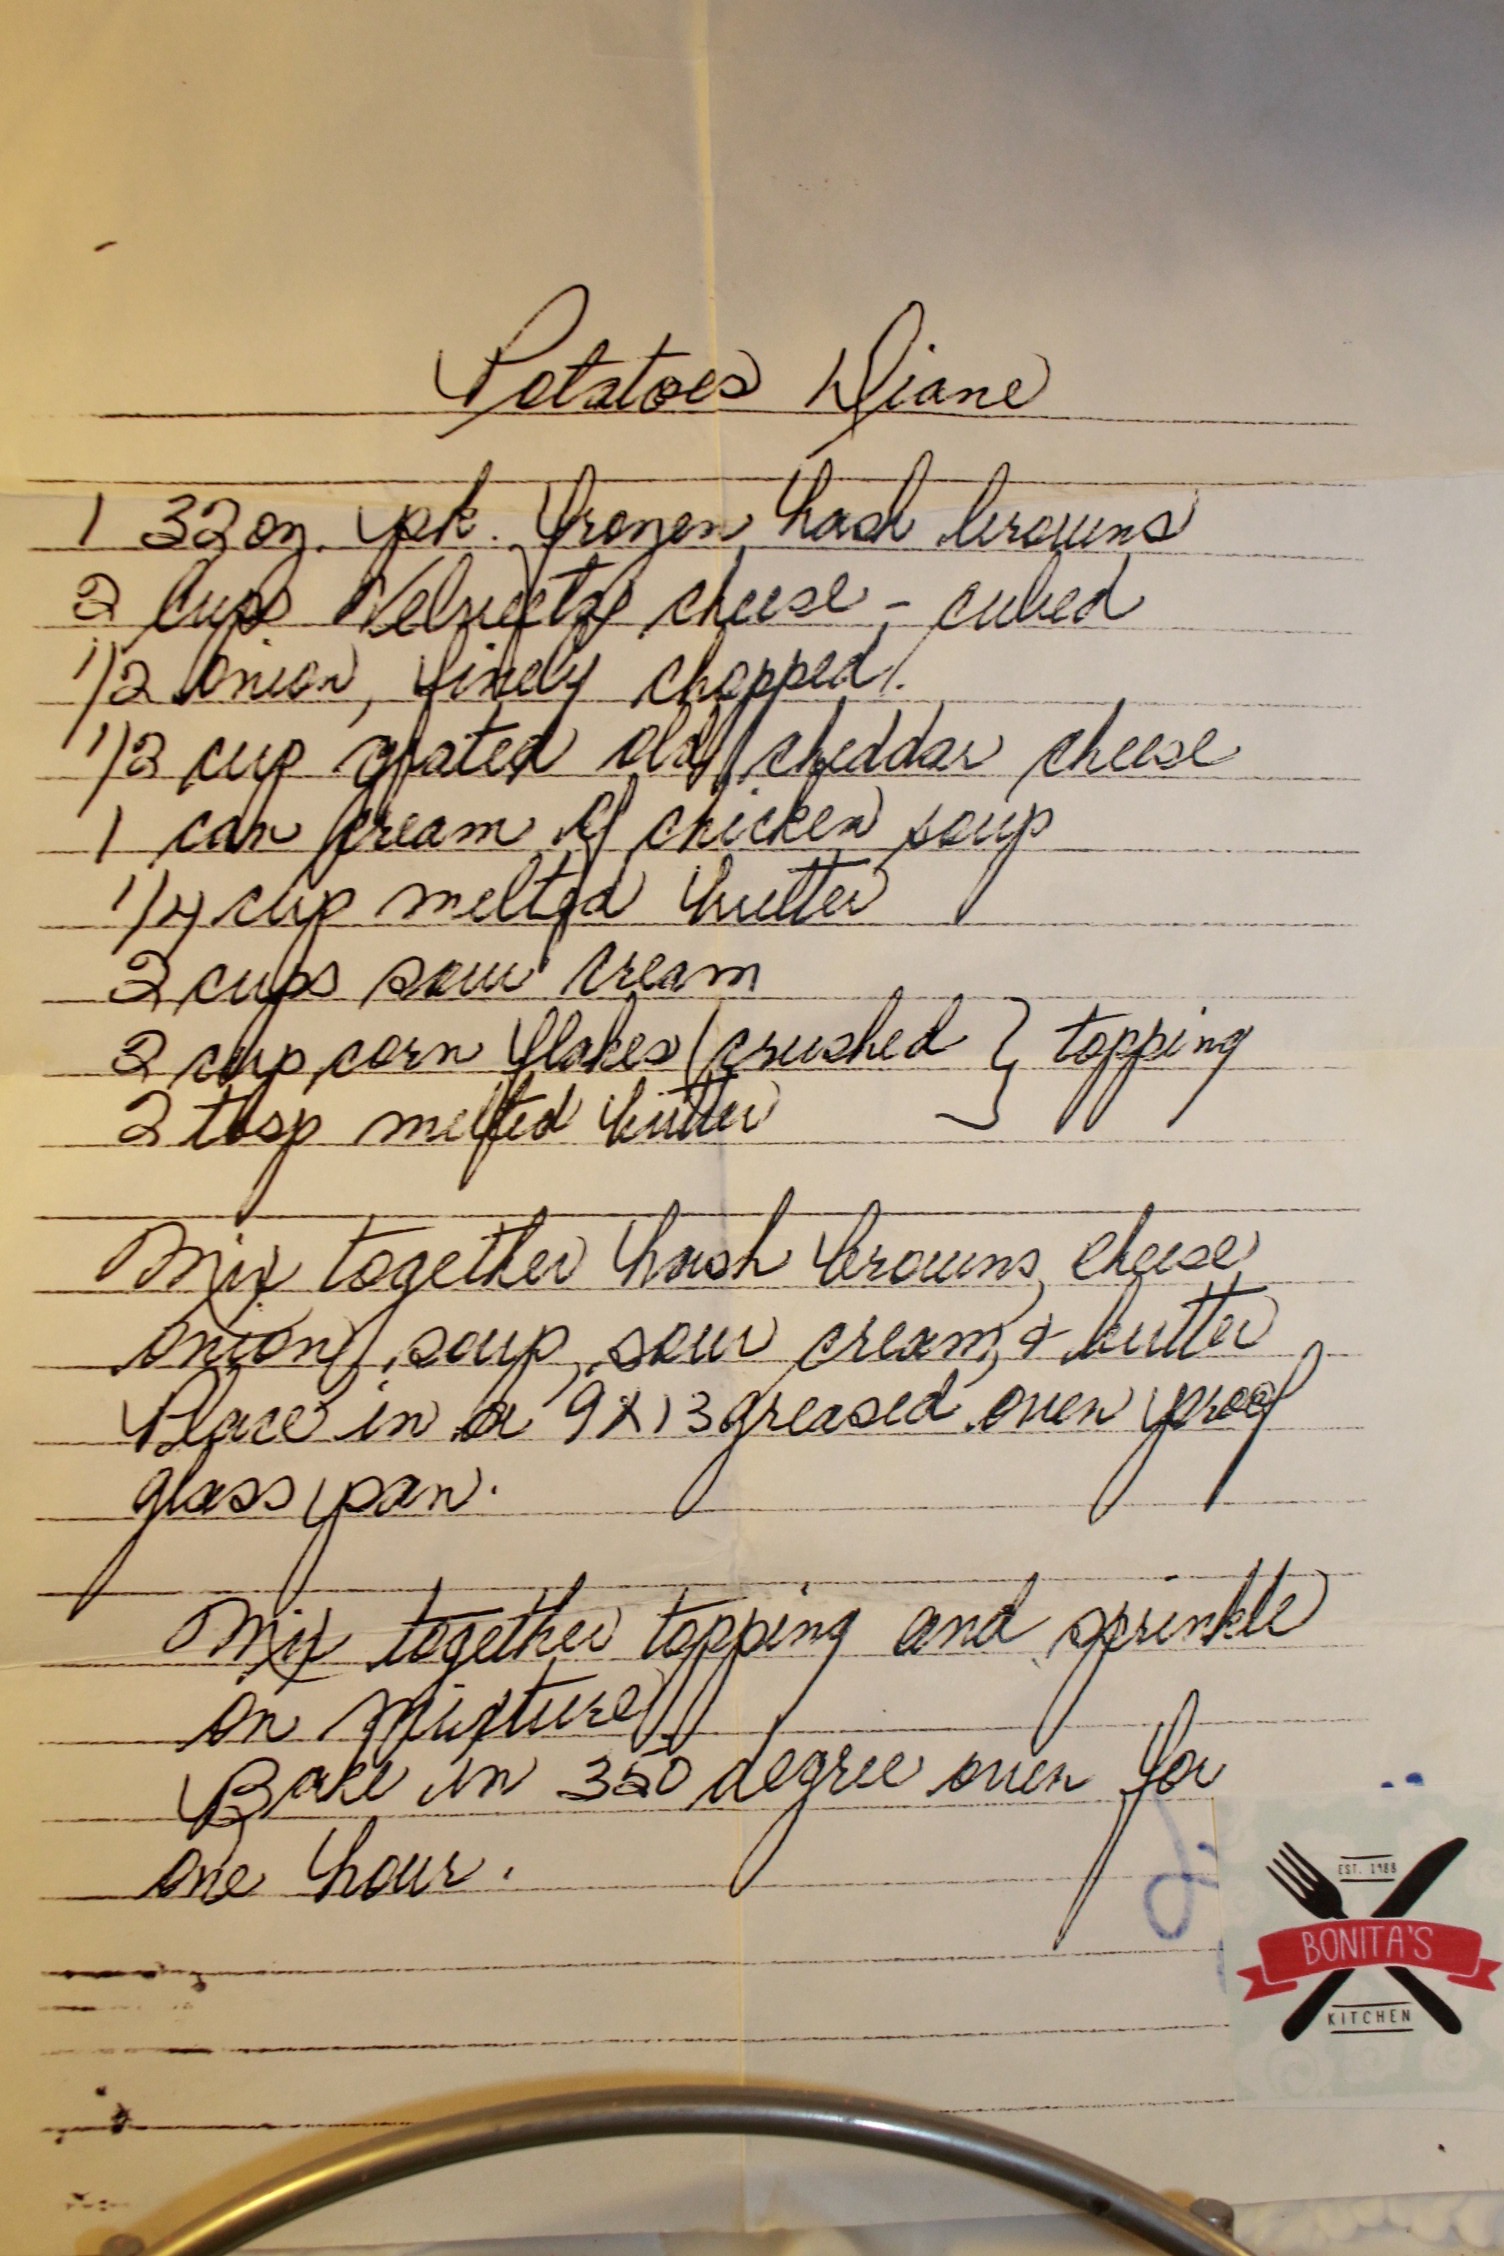 Potatoes Diane
1 32 oz. pk. frozen hash browns
2 cups Velveeta cheese - cubed
1/2 onion, finely chopped.
1/2 cup grated old cheddar cheese
1 can cream of chicken soup
1/4 cup melted butter
2 cups sour cream
2 cup corn flakes (crushed } topping
2 tbsp melted butter
Mix together hash browns, cheese
onion, soup, sour cream, & butter
Place in a 9x13 greased oven proof
glass pan.
Mix together topping and sprinkle
on mixture
Bake in 350 degree oven for
one hour.
EST. 1988
BONITA'S
KITCHEN